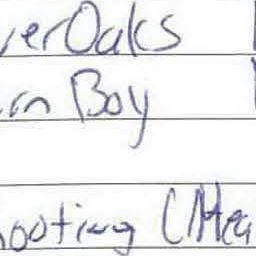 verOaks
rn Boy
ooting (Mea